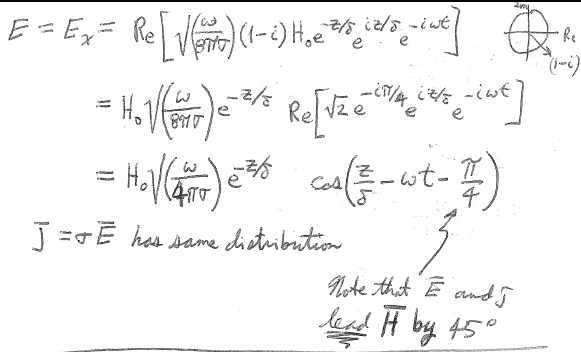 E = Eₓ = Re[√(ω/8πσ) (1-i) H₀ e^{-z/δ} e^{iz/δ} e^{-iωt}]
Im
Re
(1-i)
= H₀ √(ω/8πσ) e^{-z/δ} Re[√2 e^{-iπ/4} e^{iz/δ} e^{-iωt}]
= H₀ √(ω/4πσ) e^{-z/δ} cos(z/δ - ωt - π/4)
J̅ = σE̅ has same distribution
Note that E̅ and J
lead H̅ by 45°